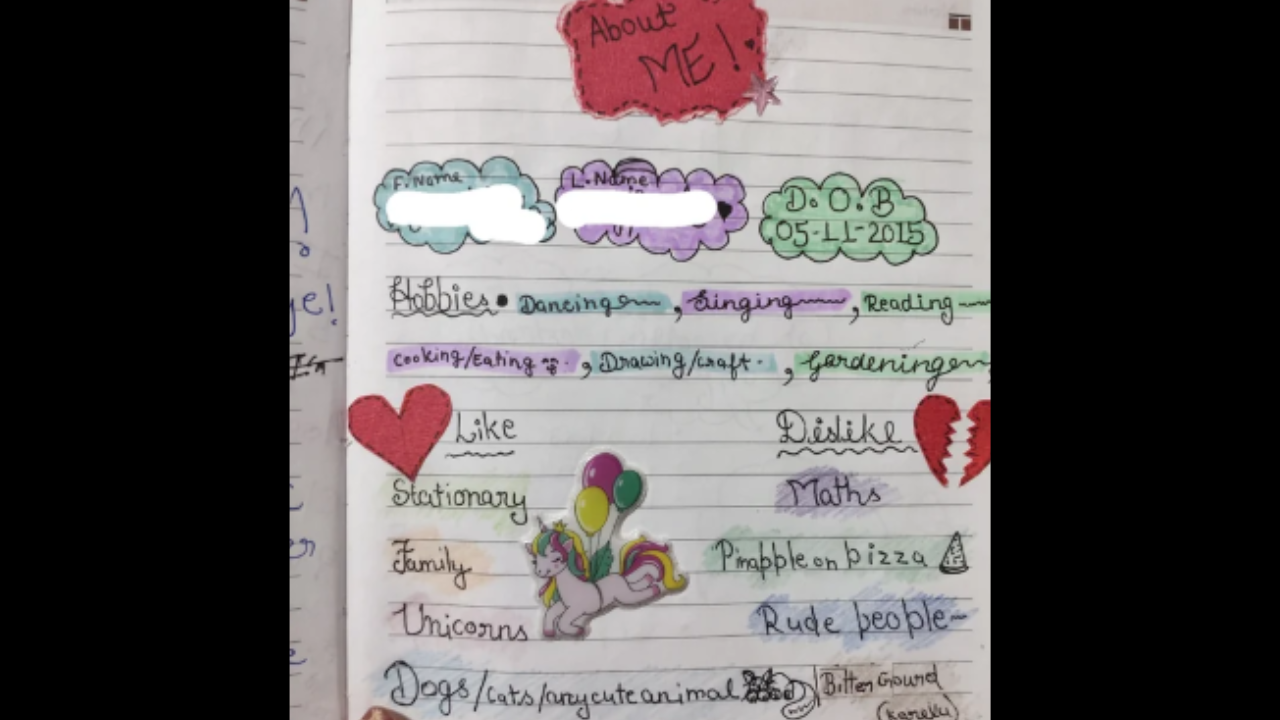 About
ME!
F. Name
L. Name
D. O. B
05-11-2015
Hobbies • Dancing, Singing, Reading
Cooking/Eating, Drawing/craft, Gardening
Like
Dislike
Stationary
Maths
Family
Pinapple on pizza
Unicorns
Rude people
Dogs/cats/any cute animal
Bitter Gourd
ye!